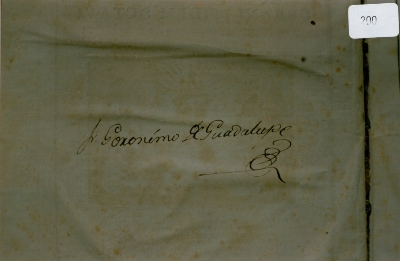 200
fr. Geronimo de Guadalupe